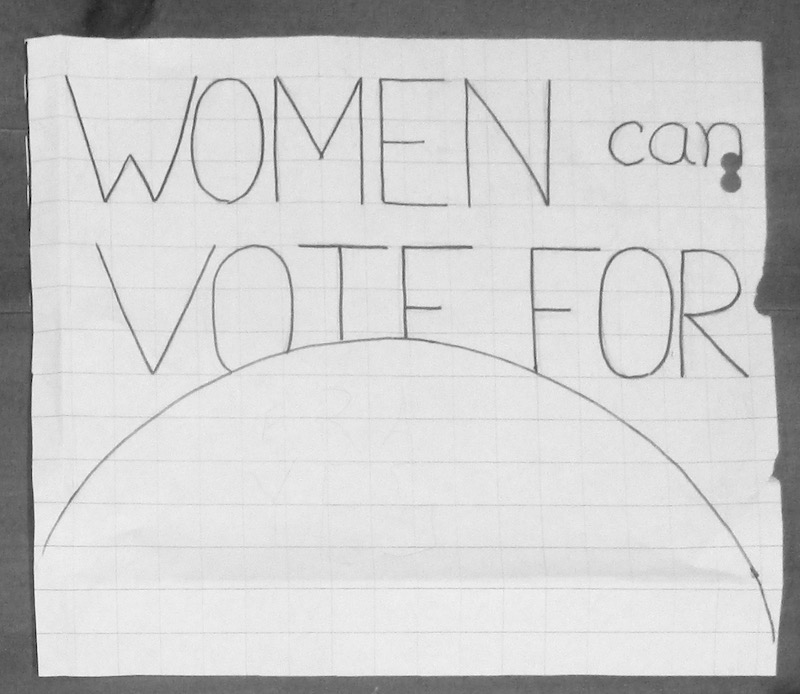 WOMEN can
VOTE FOR